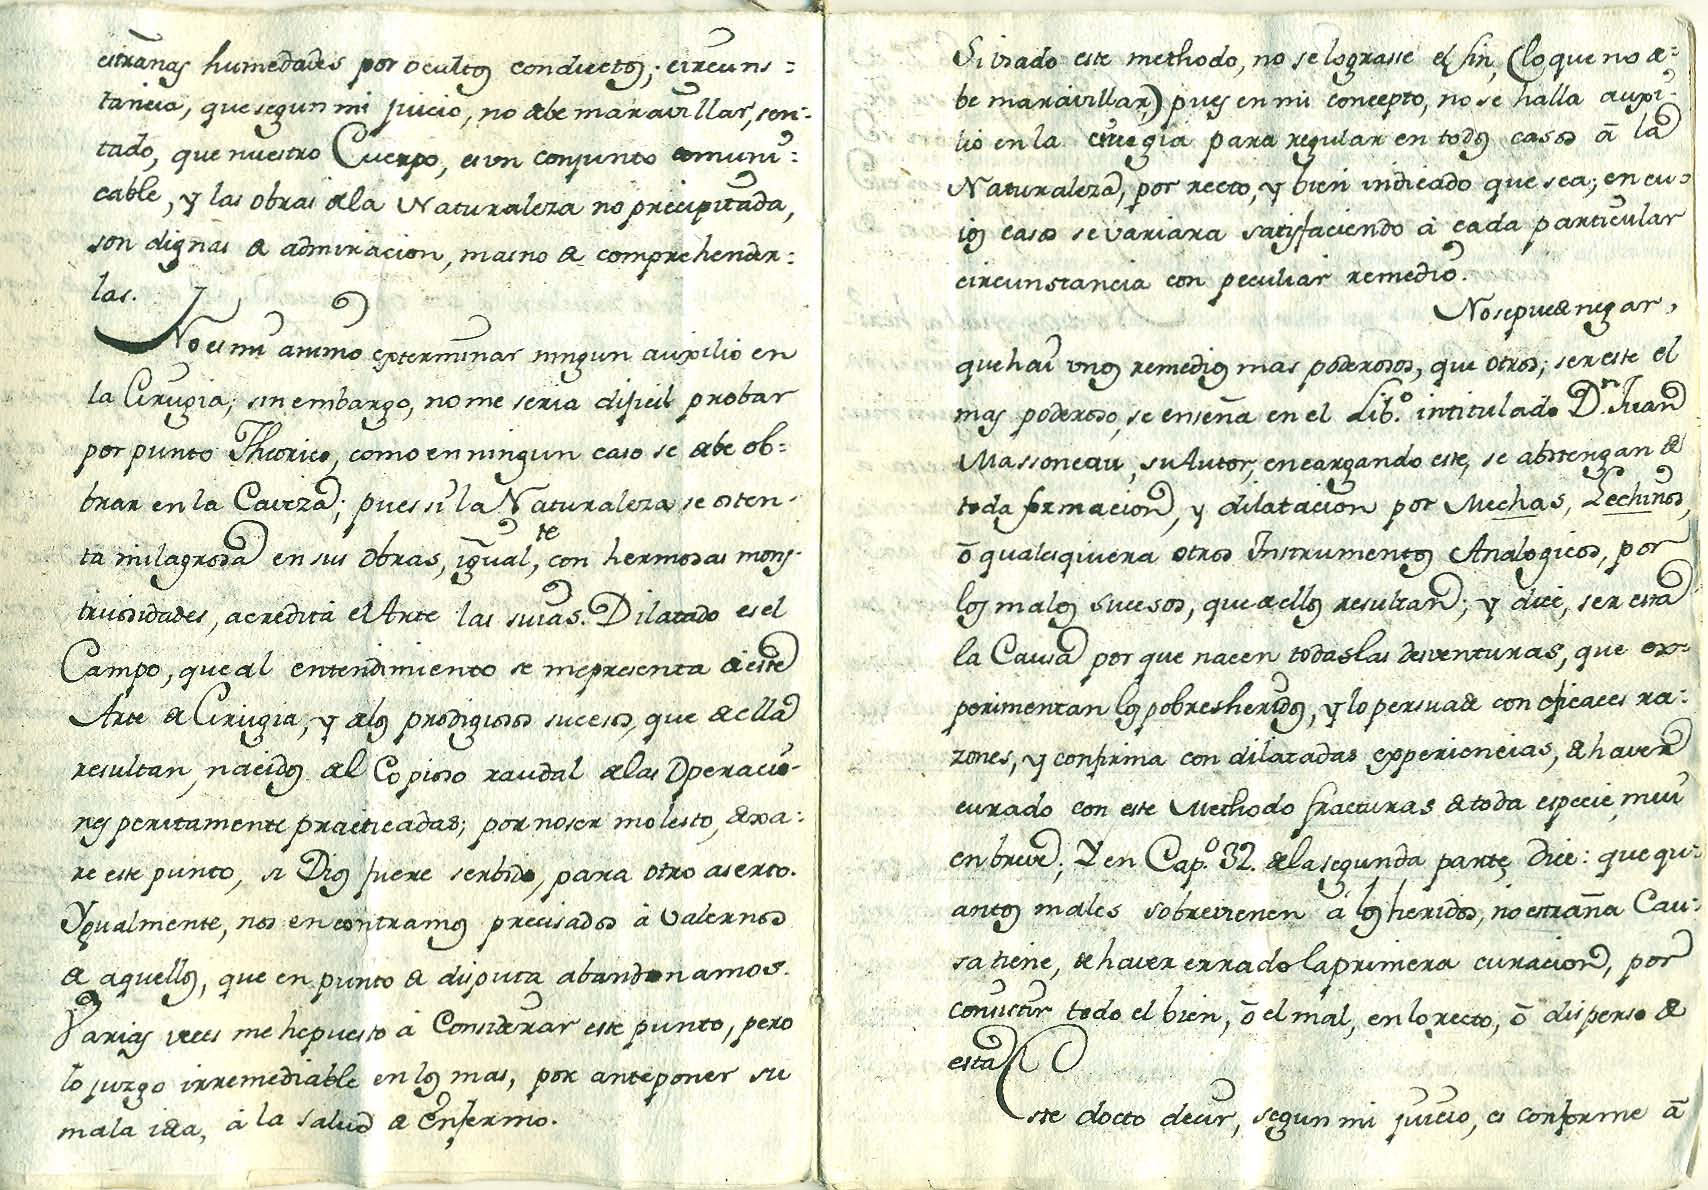 estrañas humedades por ocultos conductos; circuns=
tancia, que segun mi juicio, no debe maravillar, sen=
tado, que nuestro Cuerpo, es un conjunto comuni=
cable, y las obras de la Naturaleza no precipitada,
son dignas de admiracion, mas no de comprehender=
las.
No es mi animo exterminar ningun auxilio en
la Cirugia; sin embargo, no me seria dificil probar
por punto Theorico, como en ningun caso se debe ob=
brar en la Caveza; pues si la Naturaleza se osten-
ta milagrosa en sus obras, igual.te, con hermosas mons-
truosidades, acredita el Arte las suias. Dilatado es el
Campo, que al entendimiento se me presenta de este
Arte de Cirugia, y de los prodigiosos sucesos, que de ella
resultan, nacidos del Copioso raudal de las Operacio-
nes peritamente practicadas; por no ser molesto, dexa=
re este punto, si Dios fuere serbido, para otro aserto.
Ygualmente, nos encontramos precisados à valernos
de aquellos, que en punto de disputa abandonamos.
Varias veces me he puesto à Considerar este punto, pero
lo juzgo irremediable en los mas, por anteponer su
mala idea, à la salud de Enfermo.
Si usado este methodo, no se lograsse el fin, (lo que no de=
be maravillar) pues en mi concepto, no se halla auxi=
lio en la cirugia para regular en todos casos à la
Naturaleza, por recto, y bien indicado que sea; en cu=
ios casos se variara satisfaciendo à cada particular
circunstancia con peculiar remedio.
No se puede negar,
que hai unos remedios mas poderosos, que otros; ser este el
mas poderoso, se enseña en el Lib.º intitulado D.n Juan
Massoneau, su Autor, encargando este, se abstengan de
toda formacion, y dilatacion por Mechas, Lechinos,
ò qualesquiera otros Instrumentos Analogicos, por
los malos sucesos, que de ellos resultan; y dice, ser esta
la Causa por que nacen todas las desventuras, que ex=
perimentan los pobres heridos, y lo persuade con eficaces ra=
zones, y confirma con dilatadas experiencias, de haver
curado con este Methodo fracturas de toda especie, mui
en breve; Y en Cap.º 32. de la segunda parte, dice: que qu=
antos males sobrevienen à los heridos, no estraña Cau=
sa tiene, de haver errado la primera curacion, por
consistir todo el bien, ò el mal, en lo recto, ò disperso de
esta
Este docto decir, segun mi juicio, es conforme à